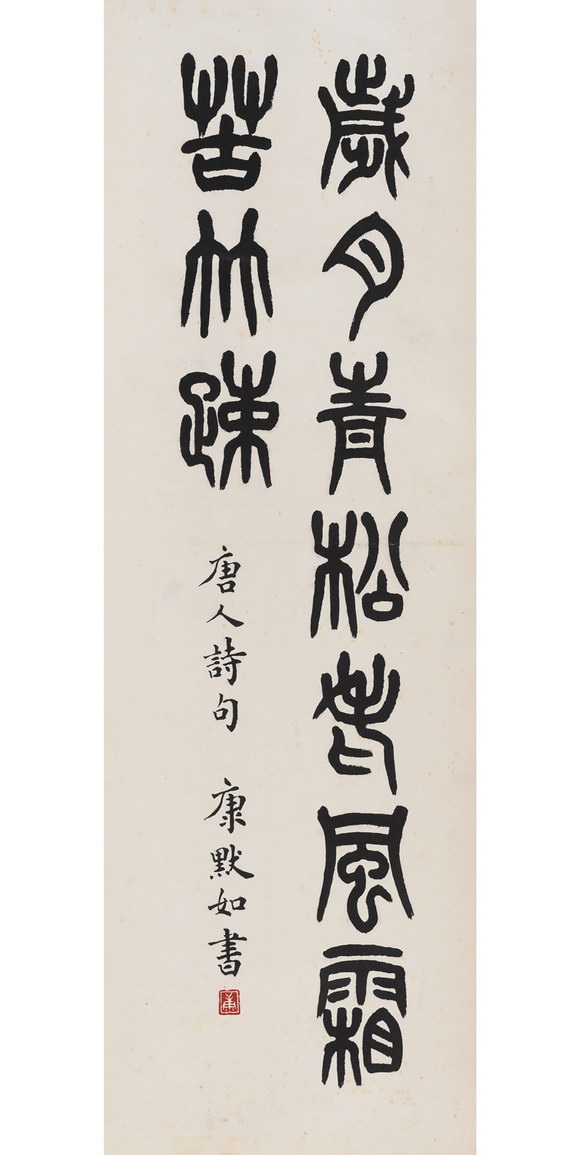 歲月青松老風霜
苦竹疎
唐人詩句 康默如書
康